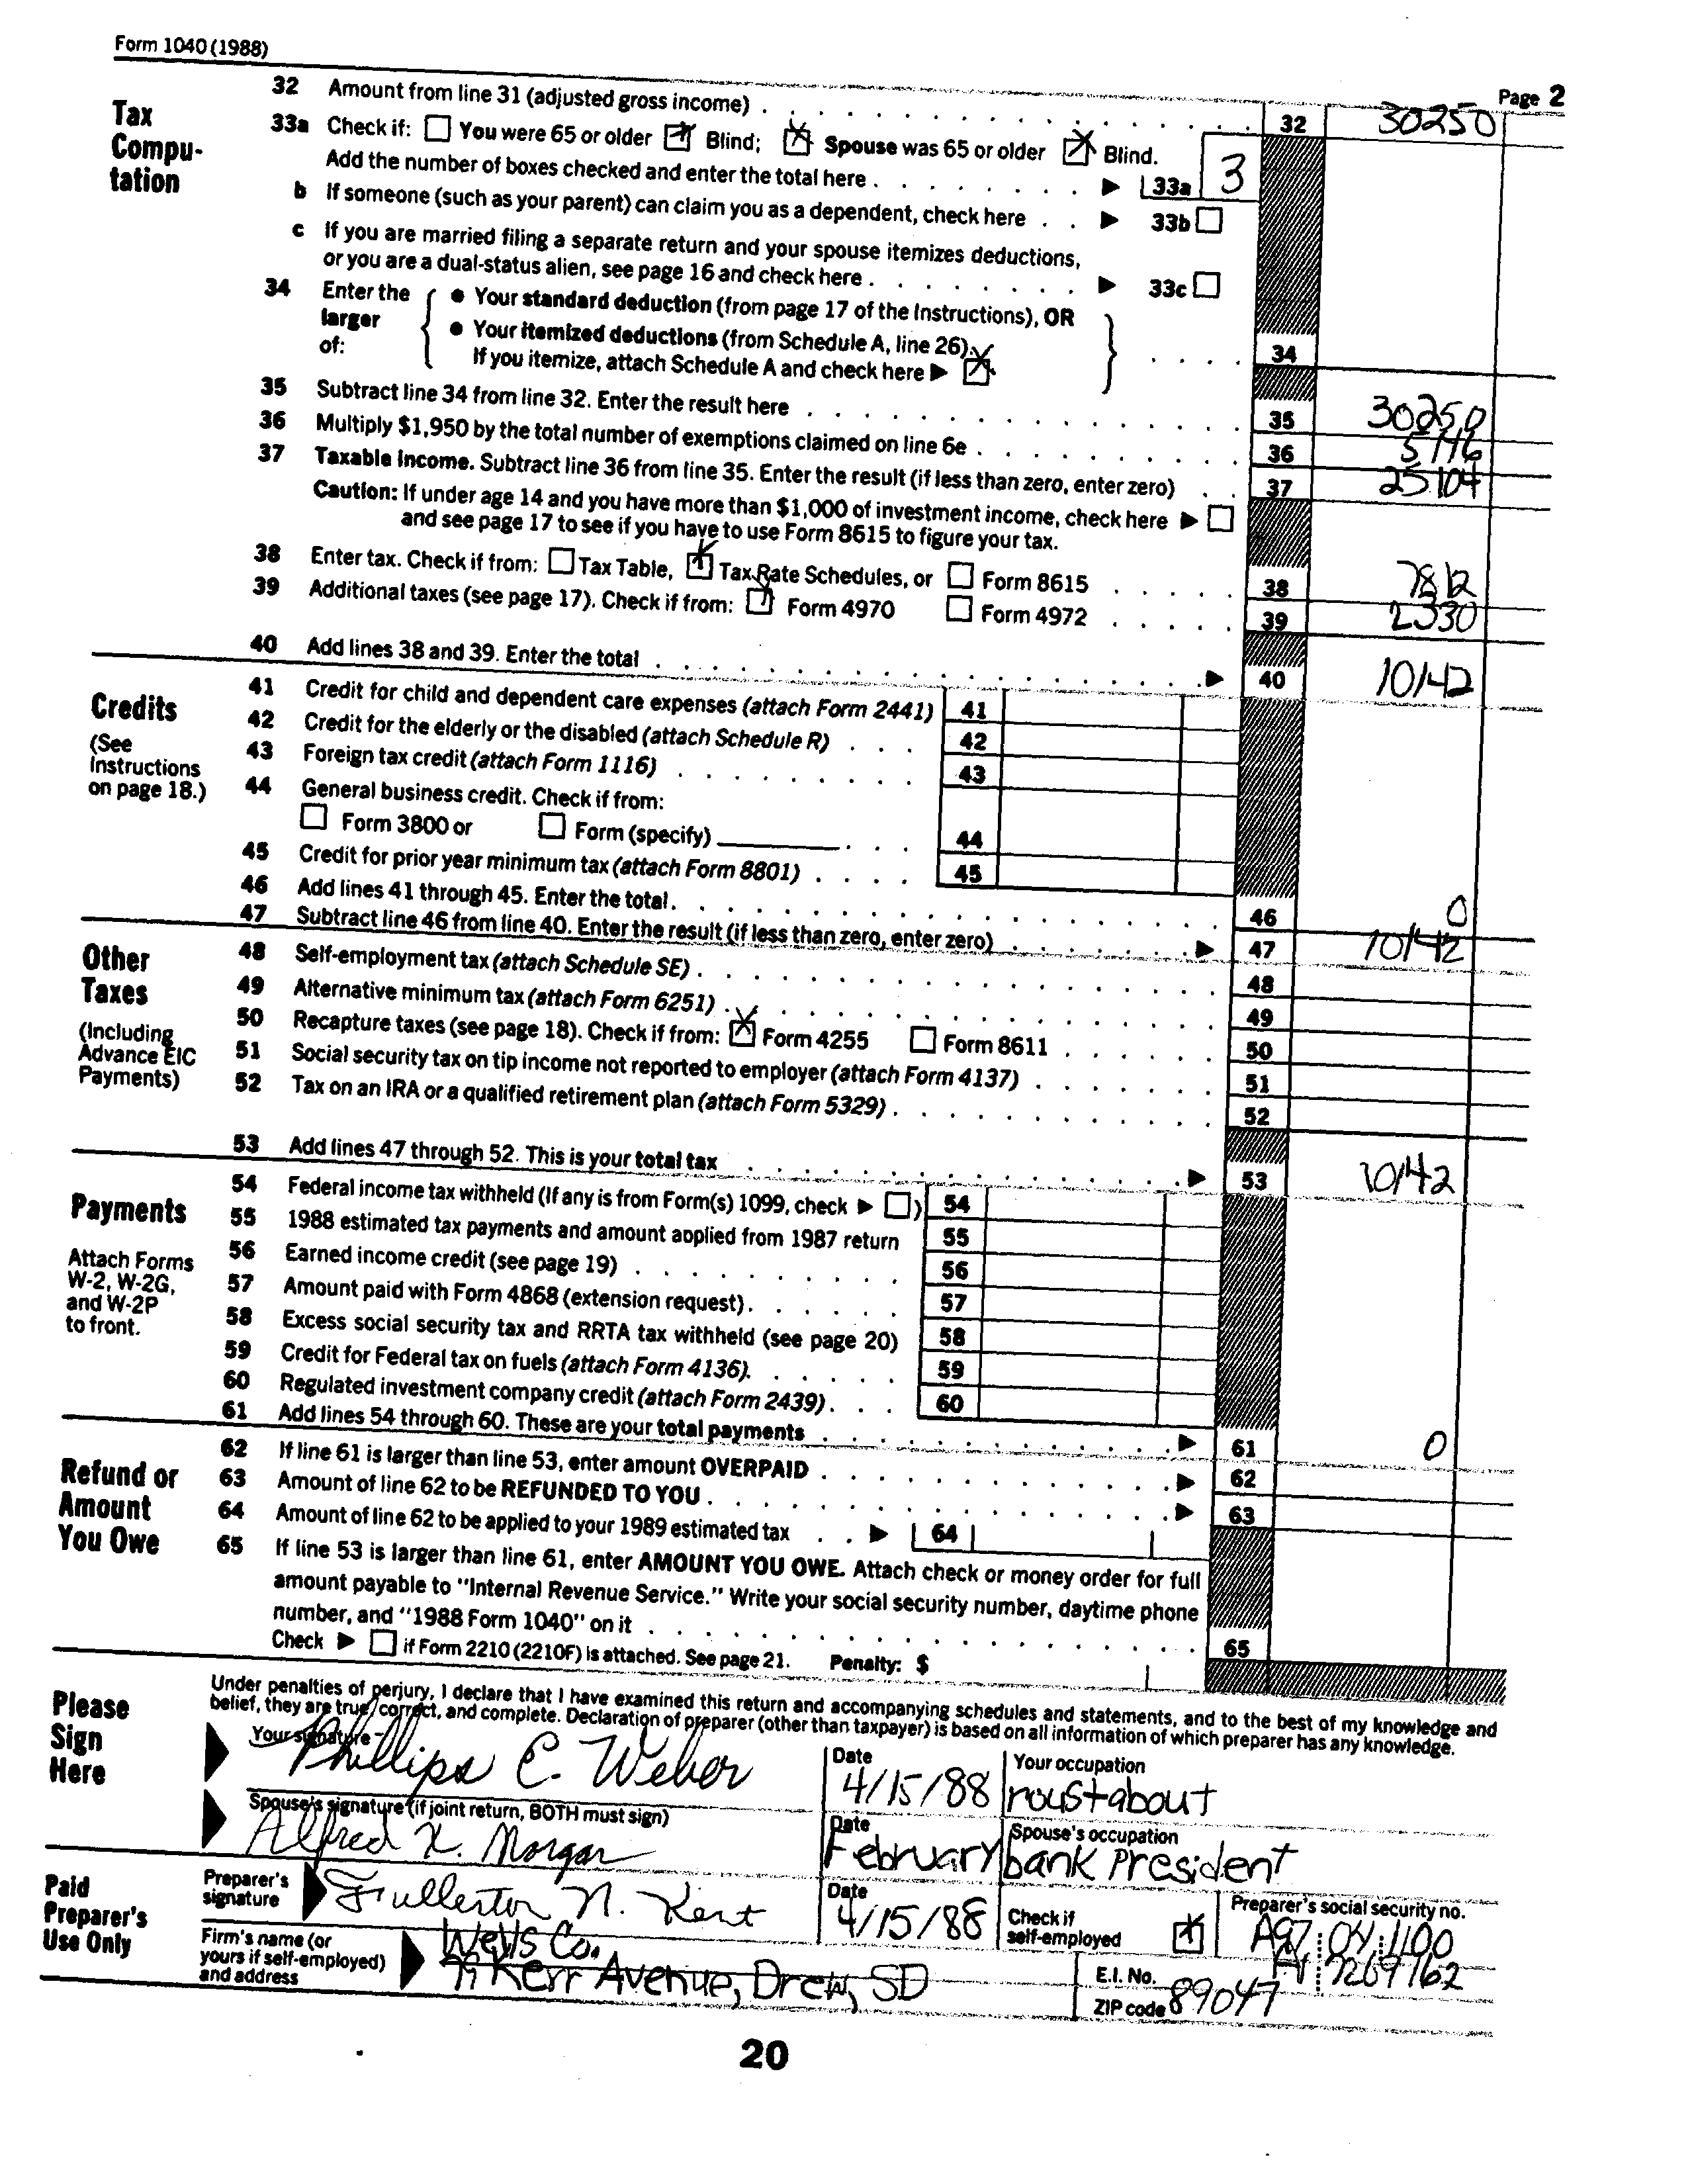 Form 1040 (1988)
Page 2
Tax Compu-tation
32 Amount from line 31 (adjusted gross income) . . . 32 30250
33a Check if: ☐ You were 65 or older ☒ Blind; ☒ Spouse was 65 or older ☒ Blind.
Add the number of boxes checked and enter the total here . . . ▶ 33a 3
b If someone (such as your parent) can claim you as a dependent, check here . . ▶ 33b ☐
c If you are married filing a separate return and your spouse itemizes deductions,
or you are a dual-status alien, see page 16 and check here . . . ▶ 33c ☐
34 Enter the larger of:
• Your standard deduction (from page 17 of the Instructions), OR
• Your itemized deductions (from Schedule A, line 26).
If you itemize, attach Schedule A and check here ▶ ☒ . . . 34
35 Subtract line 34 from line 32. Enter the result here . . . 35 30250
36 Multiply $1,950 by the total number of exemptions claimed on line 6e . . . 36 5146
37 Taxable income. Subtract line 36 from line 35. Enter the result (if less than zero, enter zero) . . 37 25104
Caution: If under age 14 and you have more than $1,000 of investment income, check here ▶ ☐
and see page 17 to see if you have to use Form 8615 to figure your tax.
38 Enter tax. Check if from: ☐ Tax Table, ☒ Tax Rate Schedules, or ☐ Form 8615 . . . 38 7812
39 Additional taxes (see page 17). Check if from: ☒ Form 4970 ☐ Form 4972 . . . 39 2330
40 Add lines 38 and 39. Enter the total . . . ▶ 40 10142
Credits
(See Instructions on page 18.)
41 Credit for child and dependent care expenses (attach Form 2441) 41
42 Credit for the elderly or the disabled (attach Schedule R) . . . 42
43 Foreign tax credit (attach Form 1116) . . . 43
44 General business credit. Check if from:
☐ Form 3800 or ☐ Form (specify) . . . 44
45 Credit for prior year minimum tax (attach Form 8801) . . . 45
46 Add lines 41 through 45. Enter the total . . . 46 0
47 Subtract line 46 from line 40. Enter the result (if less than zero, enter zero) . . . ▶ 47 10142
Other Taxes
(Including Advance EIC Payments)
48 Self-employment tax (attach Schedule SE) . . . 48
49 Alternative minimum tax (attach Form 6251) . . . 49
50 Recapture taxes (see page 18). Check if from: ☒ Form 4255 ☐ Form 8611 . . . 50
51 Social security tax on tip income not reported to employer (attach Form 4137) . . . 51
52 Tax on an IRA or a qualified retirement plan (attach Form 5329) . . . 52
53 Add lines 47 through 52. This is your total tax . . . ▶ 53 10142
Payments
Attach Forms W-2, W-2G, and W-2P to front.
54 Federal income tax withheld (If any is from Form(s) 1099, check ▶ ☐) 54
55 1988 estimated tax payments and amount applied from 1987 return 55
56 Earned income credit (see page 19) . . . 56
57 Amount paid with Form 4868 (extension request) . . . 57
58 Excess social security tax and RRTA tax withheld (see page 20) 58
59 Credit for Federal tax on fuels (attach Form 4136). . . . 59
60 Regulated investment company credit (attach Form 2439) . . . 60
61 Add lines 54 through 60. These are your total payments . . . ▶ 61 0
Refund or Amount You Owe
62 If line 61 is larger than line 53, enter amount OVERPAID . . . ▶ 62
63 Amount of line 62 to be REFUNDED TO YOU . . . ▶ 63
64 Amount of line 62 to be applied to your 1989 estimated tax . . ▶ 64
65 If line 53 is larger than line 61, enter AMOUNT YOU OWE. Attach check or money order for full
amount payable to "Internal Revenue Service." Write your social security number, daytime phone
number, and "1988 Form 1040" on it . . . 65
Check ▶ ☐ if Form 2210 (2210F) is attached. See page 21. Penalty: $
Please Sign Here
Under penalties of perjury, I declare that I have examined this return and accompanying schedules and statements, and to the best of my knowledge and
belief, they are true, correct, and complete. Declaration of preparer (other than taxpayer) is based on all information of which preparer has any knowledge.
Your signature Phillips C. Weber
Date 4/15/88
Your occupation roustabout
Spouse's signature (if joint return, BOTH must sign) Alfred X. Morgan
Date February
Spouse's occupation bank President
Paid Preparer's Use Only
Preparer's signature Fullerton N. Kent
Date 4/15/88
Check if self-employed ☒
Preparer's social security no. A97 04 1100
Firm's name (or yours if self-employed) and address
Wells Co.
79 Kerr Avenue, Drew, SD
E.I. No. 9269162
ZIP code 89047
20